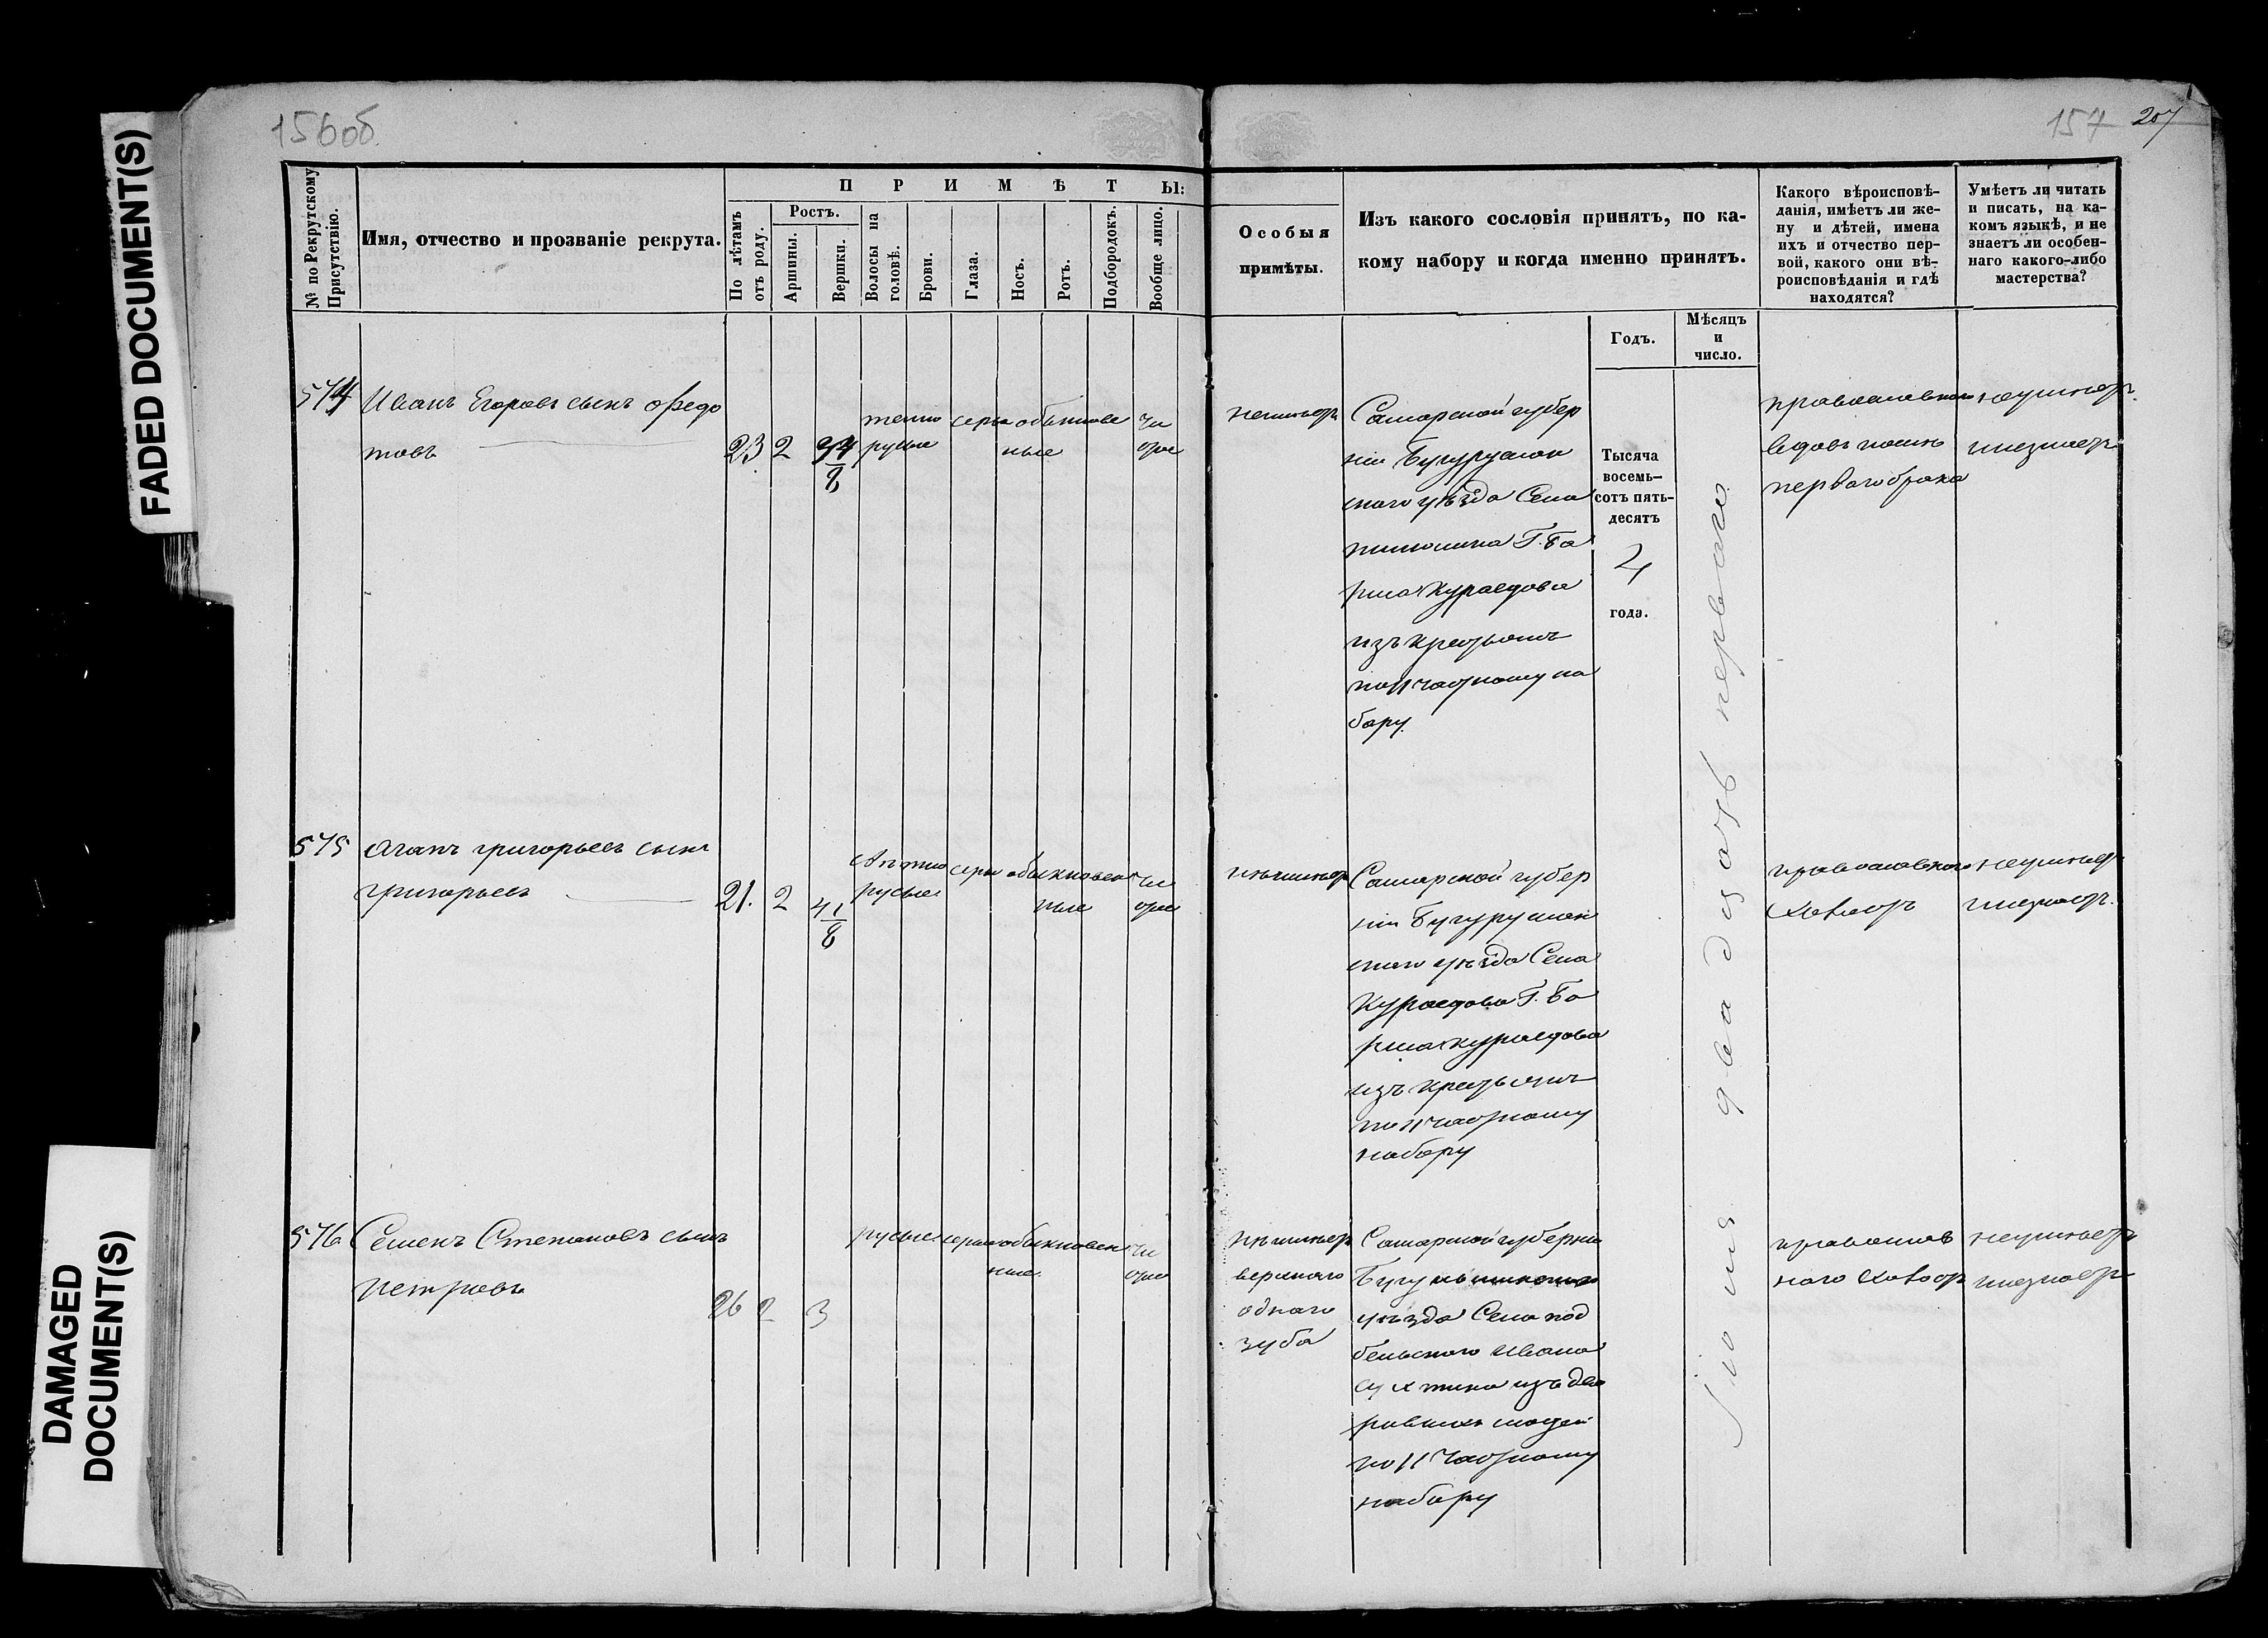 FADED DOCUMENT(S)
DAMAGED
DOCUMENT(S)
156об
157
207
№ по Рекрутскому Присутствію.
Имя, отчество и прозваніе рекрута.
ПРИМѢТЫ:
По лѣтамъ отъ роду.
Ростъ.
Аршины.
Вершки.
Волосы на головѣ.
Брови.
Глаза.
Носъ.
Ротъ.
Подбородокъ.
Вообще лицо.
Особыя
примѣты.
Изъ какого сословія принятъ, по ка-
кому набору и когда именно принятъ.
Годъ.
Мѣсяцъ
и
число.
Какого вѣроисповѣ-
данія, имѣетъ ли же-
ну и дѣтей, имена
ихъ и отчество пер-
вой, какого они вѣ-
роисповѣданія и гдѣ
находятся?
Умѣетъ ли читать
и писать, на ка-
комъ языкѣ, и не
знаетъ ли особен-
наго какого-либо
мастерства?
574
Иванъ Егоровъ сынъ Федо
товъ
23 2
темно
русые
серы
обыкнове
ные
чи
стое
неимѣетъ
Самарской губер
ніи Бугуруслан
скаго уѣзда Села
Г. Бо
риса Кураедова
изъ крестьянъ
по 11 частному на
бору.
Тысяча
восемь-
сотъ пять-
десятъ
4
года.
Іюня двадцать перваго
православнаго
вдовъ послѣ
перваго брака
неумѣетъ
инезнаетъ
575
Агапъ Григорьевъ сынъ
Григорьевъ
21. 2 4 1/8
свѣтло
русые
серы
обыкновен
ные
чи
стое
неимѣетъ
Самарской губер
ніи Бугуруслан
скаго уѣзда Села
Кураедова Г. Бо
риса Кураедова
изъ крестьянъ
по 11 частному
набору
православнаго
Холостъ
неумѣетъ
инезнаетъ.
576
Семенъ Степановъ сынъ
Петровъ
26 2 3
русые
серые
обыкновен
ные
чи
стое
неимѣетъ
верхняго
одного
зуба
Самарской губерніи
уѣзда Села Под
бельского Ивана
изъ дво
ровыхъ людей
по 11 частному
набору
православ
наго Холостъ
неумѣетъ
инезнаетъ